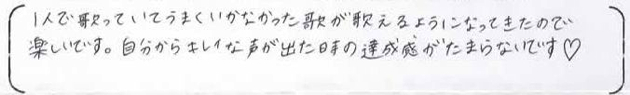 1人で歌っていてうまくいかなかった歌が歌えるようになってきたので
楽しいです。自分からキレイな声が出た時の達成感がたまらないです♡